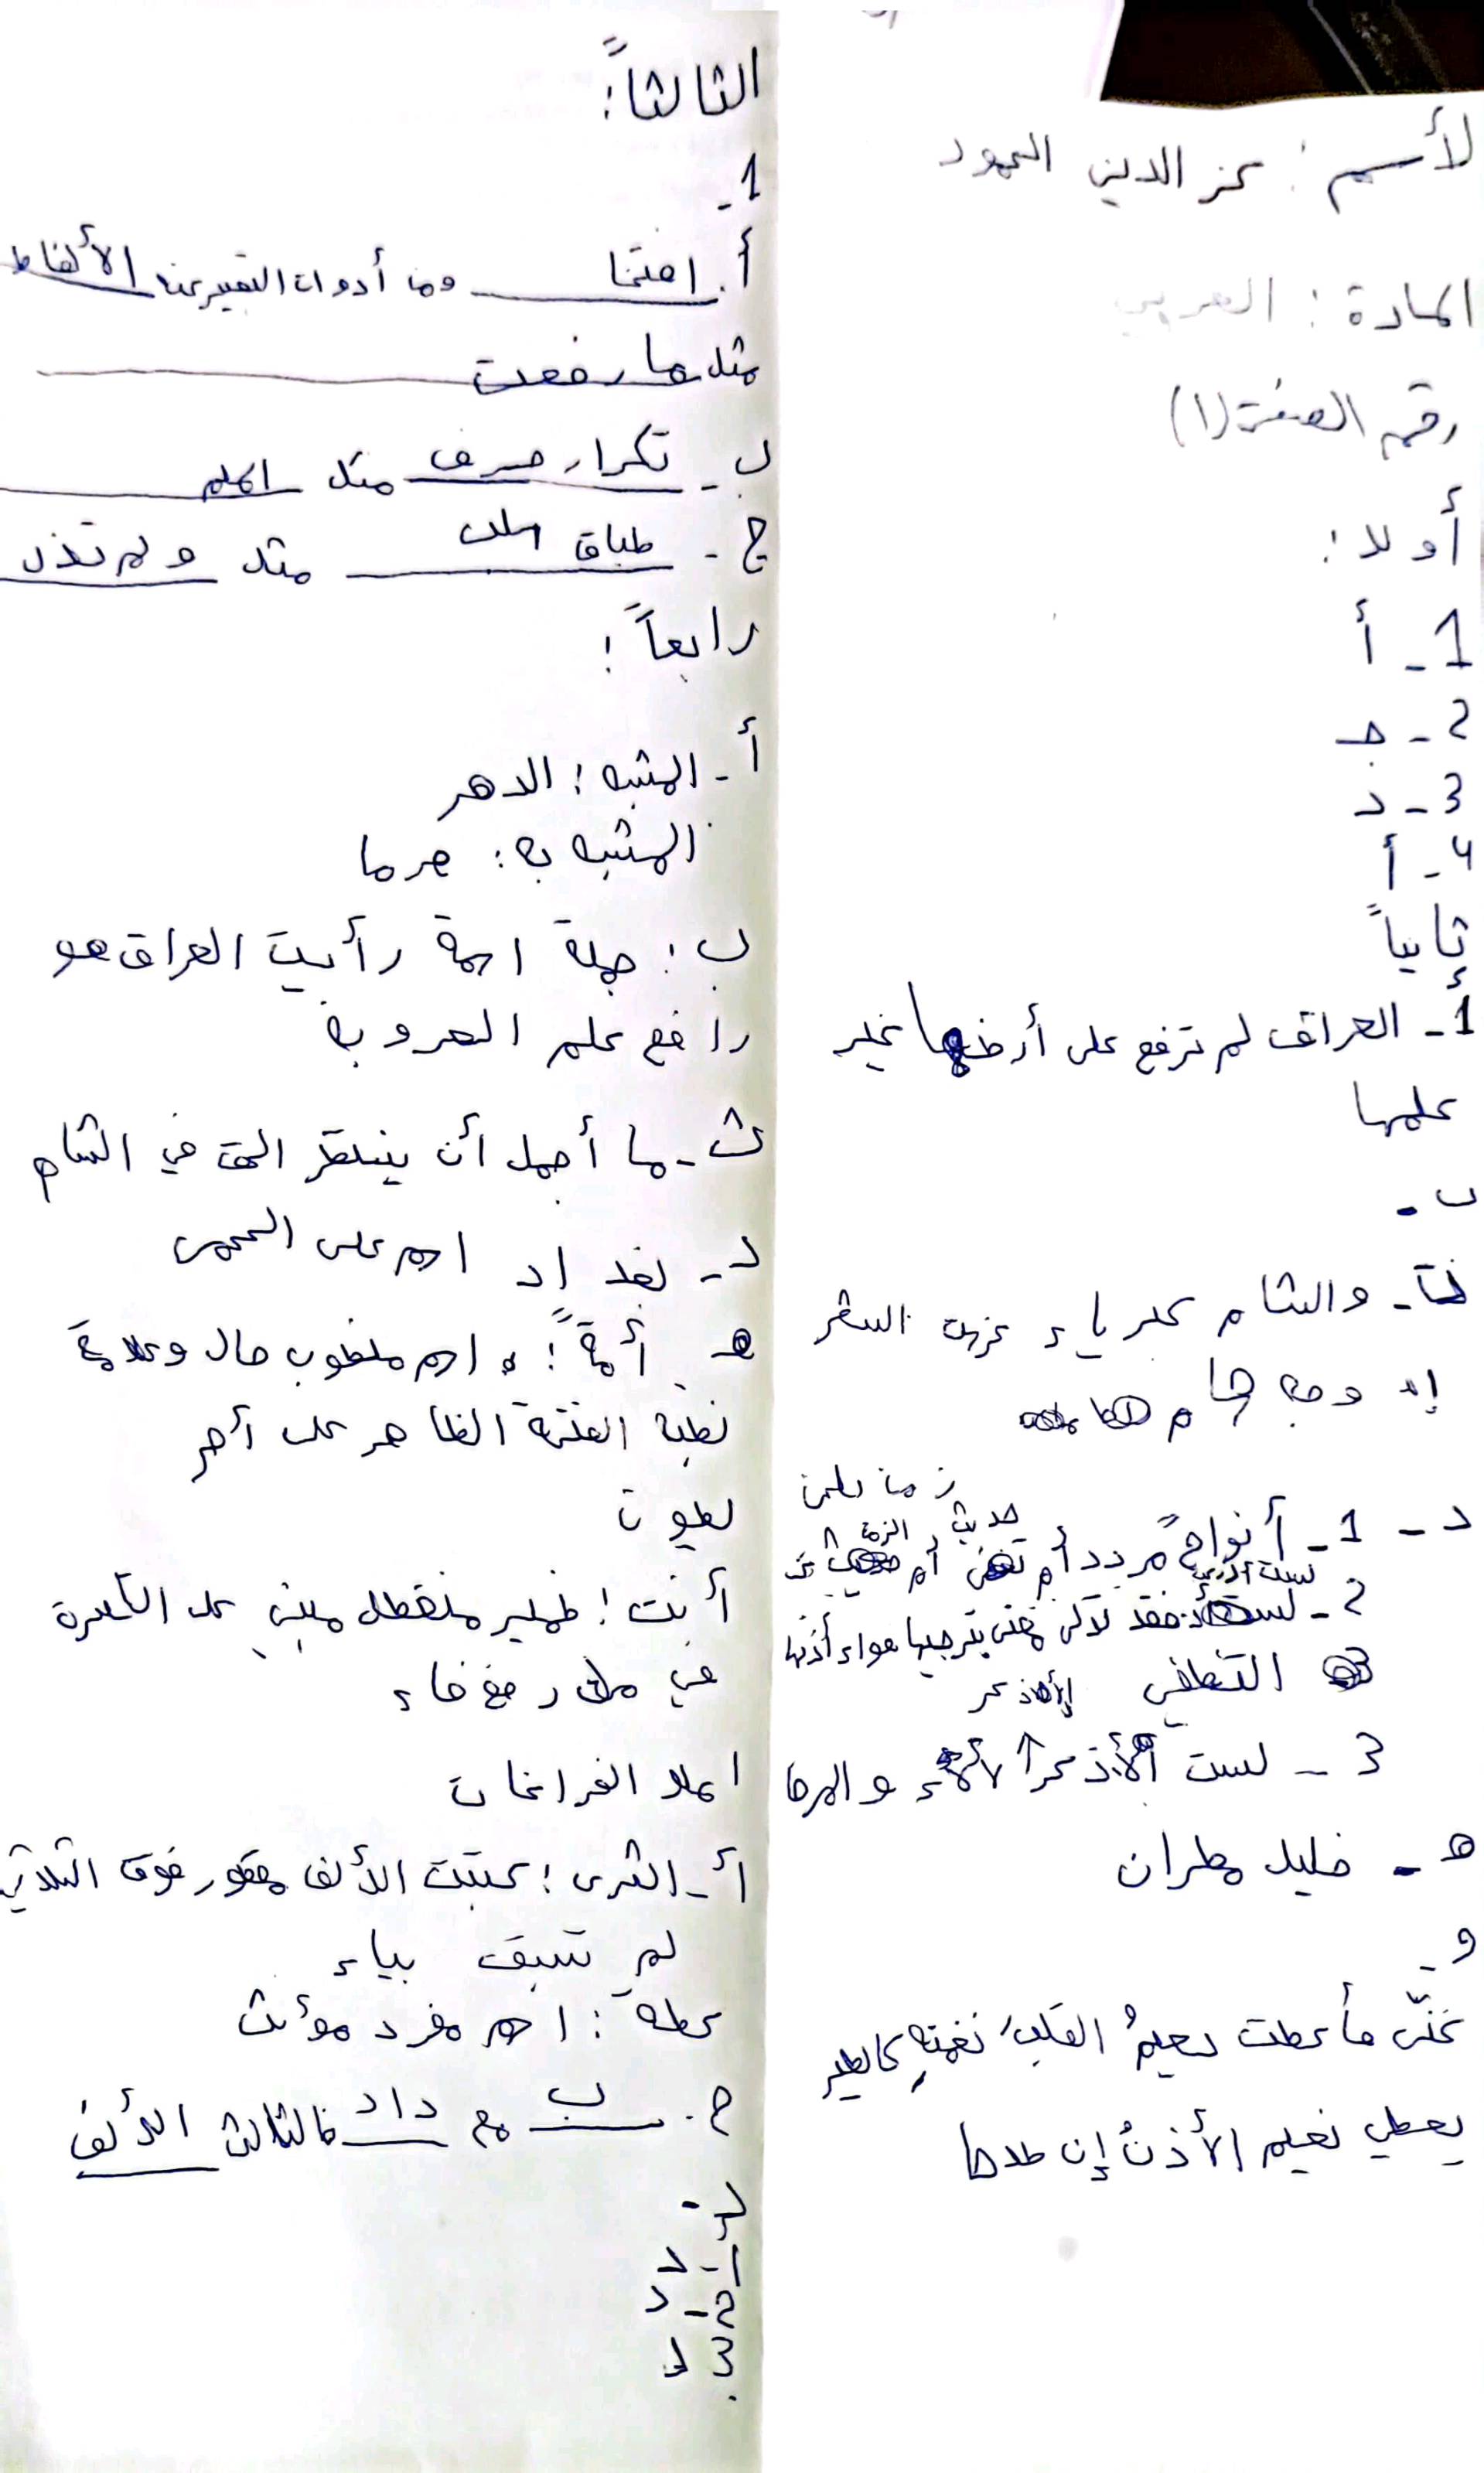 لأسم : عز الدين الحمود
المادة : العربي
رقم الصفحة (1)
أولا :
1 - أ
2 - جـ
3 - د
4 - أ
ثانياً
أ - العراق لم ترفع على أرضها غير
علمها
ب -
ت - والشام كبرياء عزت السفر
إنه وجه
د - 1 - أنواح مردد أم تغني أم حديث الزمان
زمان
2 - لست أدري فقد
التشظي
3 - لست لأذكر والمرضا
هـ - خليل مطران
و -
غنى ما عطت نعيم القلب نغمته كالطير
يعطي نعيم الأذن إن صدحا
الثالثاً :
1 -
أ . افتخا وما أدوات التعبير عنه الألفاظ
مثل ما رفعت
ب - تكرار حرف مثل العلم
ج - طباق سلب مثل ولم تذل
رابعاً :
أ - المشبه : الدهر
المشبه به : هرما
ب : جملة اسمة رأيت العراق هو
رافع علم العروبة
ث - ما أجمل أن ينتظر الحق في الشام
د - بغداد اسم على
هـ أمة : اسم منصوب حال وعلامة
نصبه الفتحة الظاهر على آخر
أنت : ضمير منفصل مبني على الكسرة
في محل رفع فاء
املا الفراغات
أ - الثرى : كتبت الألف مقصور فوق الثلاثي
لم تسبق بياء
عطلة : اسم مفرد مؤنث
ج . ب مع داد فالثالث الألف
د -
1 - د
2 - د
3 د